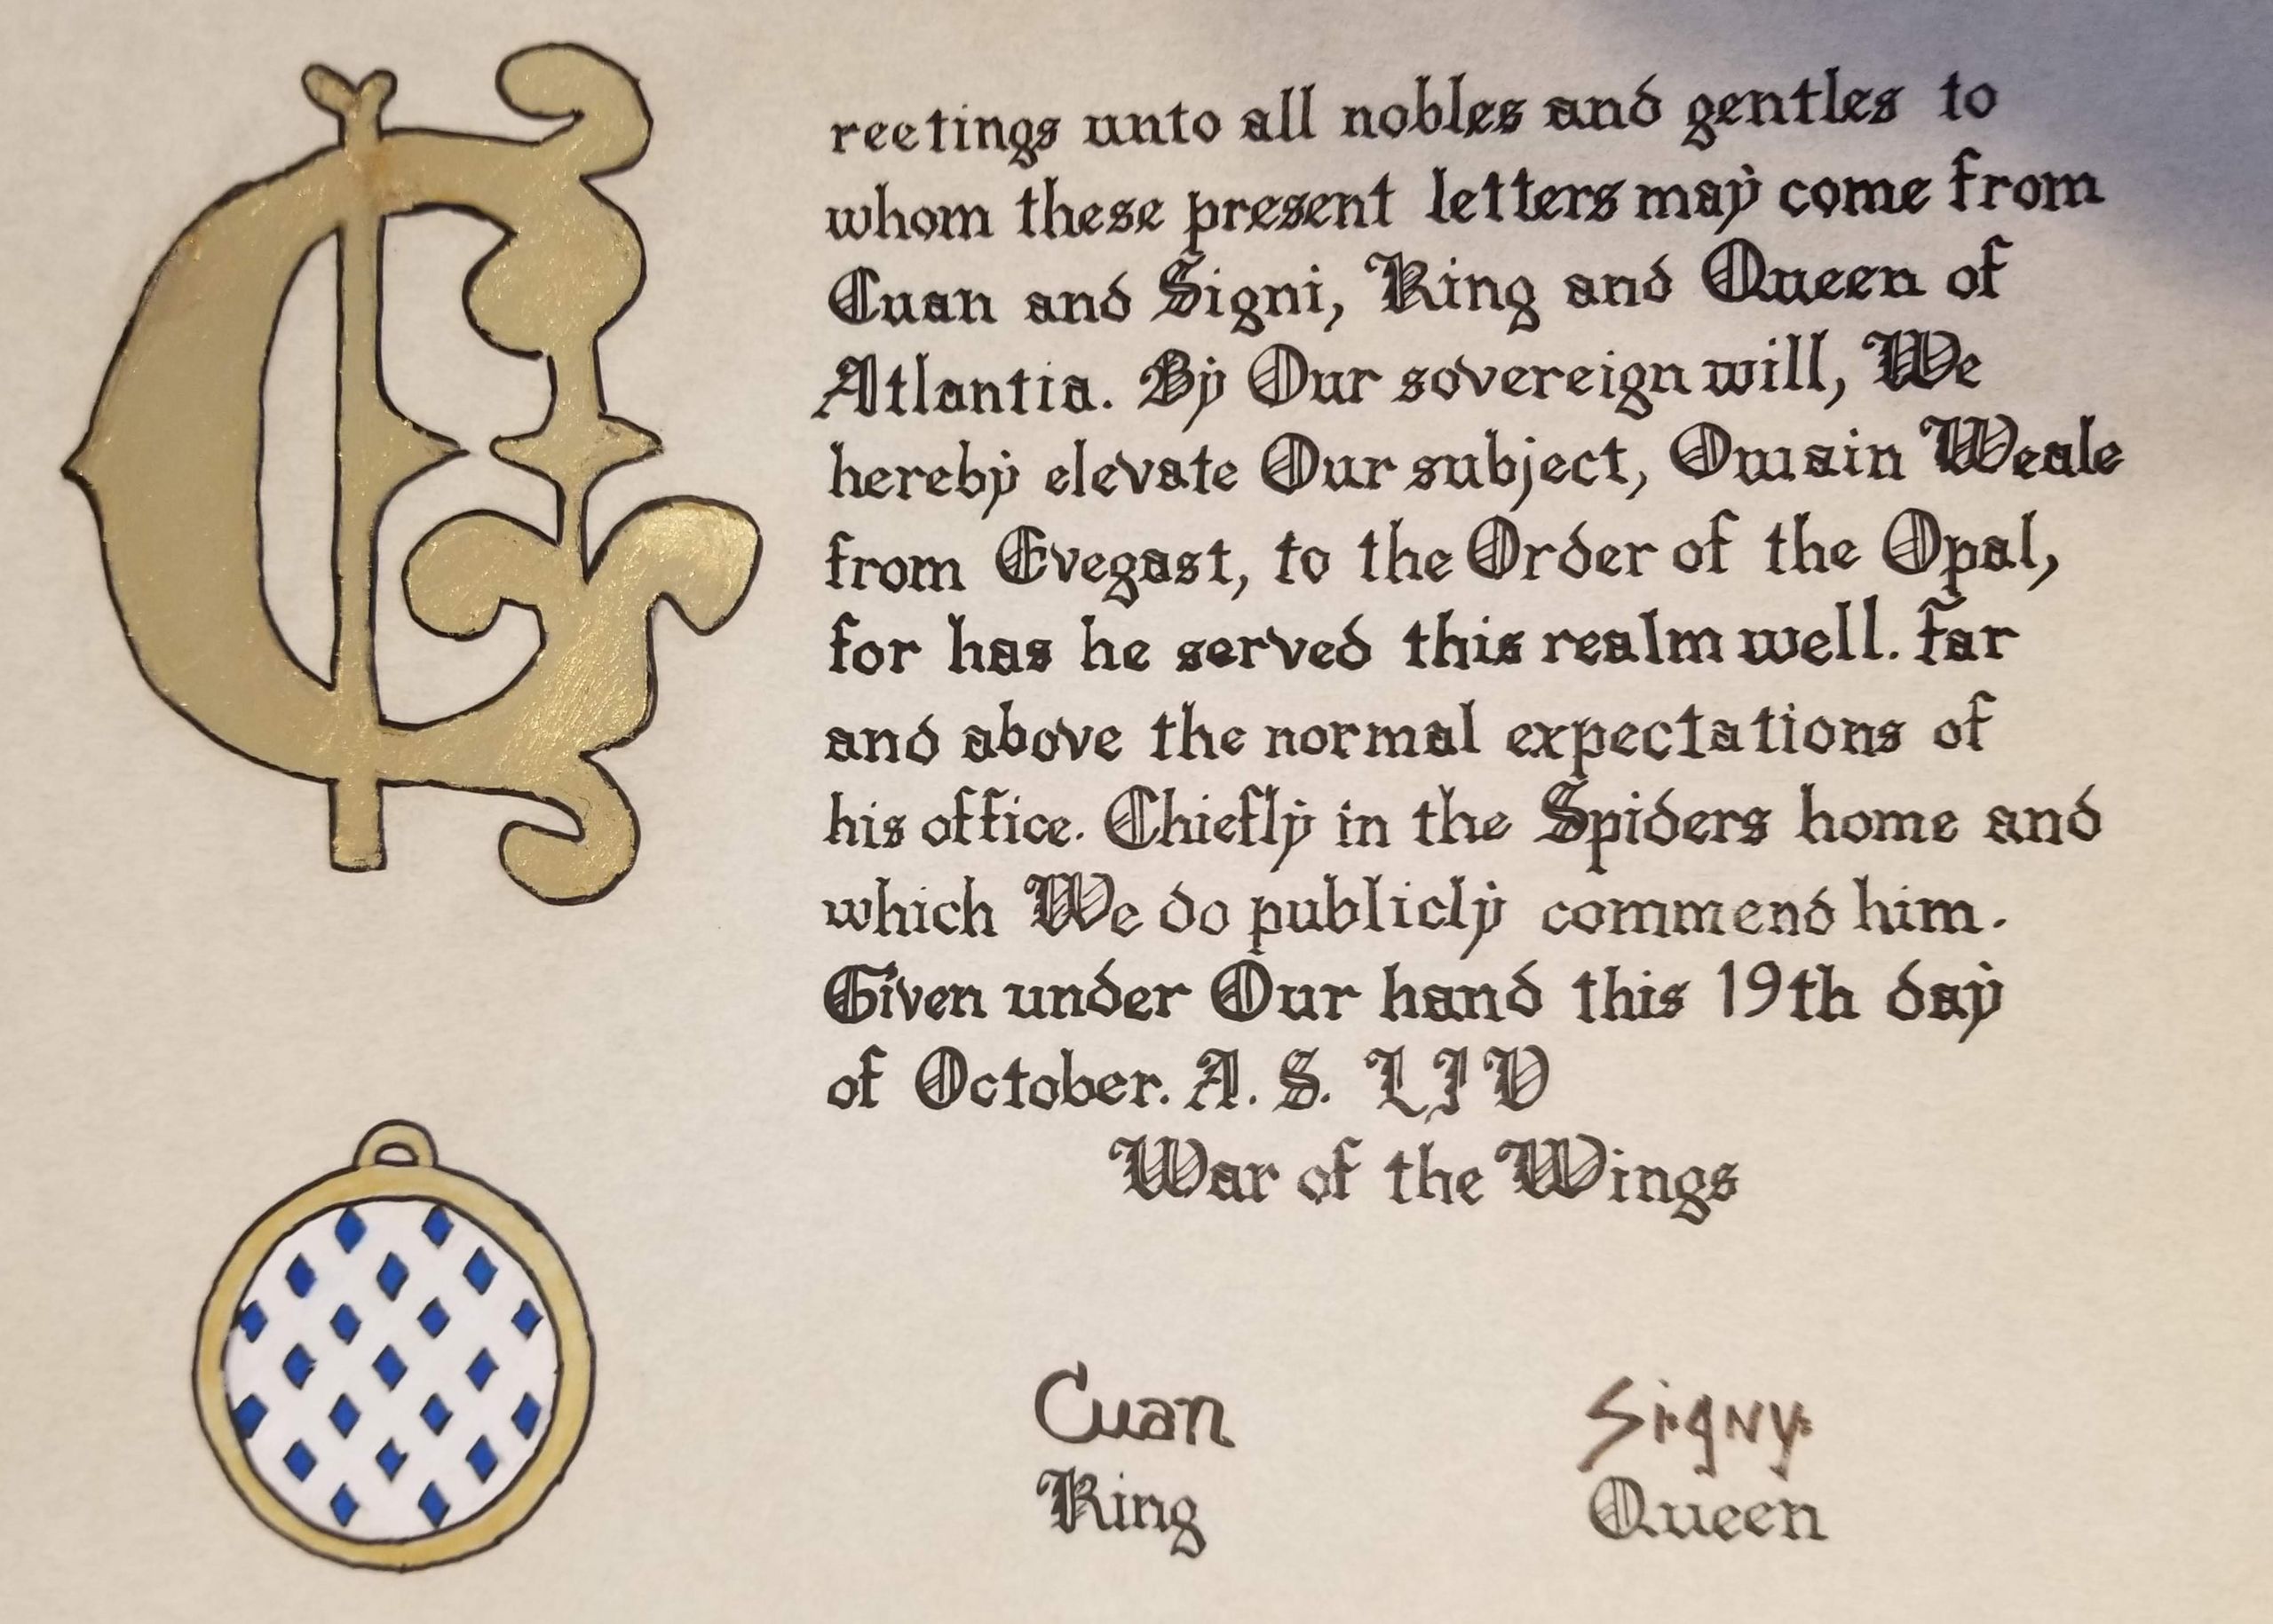 Greetings unto all nobles and gentles to
whom these present letters may come from
Cuan and Signi, King and Queen of
Atlantia. By Our sovereign will, We
hereby elevate Our subject, Owain Weale
from Evegast, to the Order of the Opal,
for has he served this realm well. Far
and above the normal expectations of
his office. Chiefly in the Spiders home and
which We do publicly commend him.
Given under Our hand this 19th day
of October. A. S. LIV
War of the Wings
Cuan Signy
King Queen